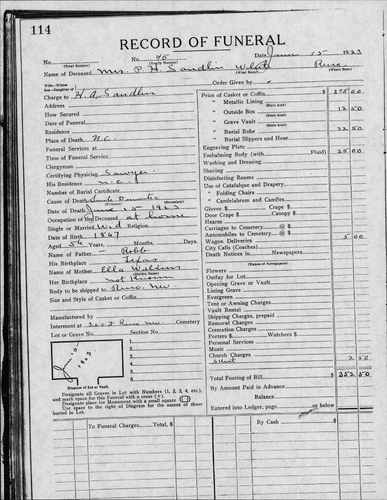 114
RECORD OF FUNERAL
No. 45 Date June 15 1923
(Total Number) (Yearly Number)
Name of Deceased Mrs. P. H. Sandlin White
(What Race) (Where Born)
Wife—Widow
Son—Daughter of Order Given
Charge to H. A. Sandlin
Address
How Secured
Date of Funeral
Residence
Place of Death N.C.
Funeral Services at
Time of Funeral Services
Clergyman
Certifying Physician Sawyer
His Residence N.C.
Number of Burial Certificate
Cause of Death
Date of Death June 15 1923
Occupation of the Deceased at home
Single or Married Wid Religion
Date of Birth 1867
Aged 56 Years, Months, Days.
Name of Father — Robb
His Birthplace Texas
Name of Mother Ella
Her Birthplace not Known
Body to be shipped to
Size and Style of Casket or Coffin
Manufactured by
Interment at Cemetery
Lot or Grave No. Section No.
1.
2.
3.
4.
5.
6.
1923
Diagram of Lot or Vault
Designate all Graves in Lot with Numbers (1, 2, 3, 4, etc.),
and mark space for this Funeral with a cross (+).
Designate place for Monument with a small square
Use space to right of Diagram for the names of those
buried in Lot.
Price of Casket or Coffin $ 275 00
" Metallic Lining
(State kind)
" Outside Box 12 50
(State kind)
" Grave Vault
(State kind)
" Burial Robe 32 50
" Burial Slippers and Hose
Engraving Plate
Embalming Body (with Fluid) 25 00
Washing and Dressing
Shaving
Disinfecting Rooms
Use of Catafalque and Drapery
" Folding Chairs
" Candelabrum and Candles
Gloves $ Crape $
Door Crape $ Canopy $
Hearse
Carriages to Cemetery
Automobiles to Cemetery
Wagon Deliveries 5 00
City Calls (Coaches)
Death Notices in Newspapers
(Names of Newspapers)
Flowers
Outlay for Lot
Opening Grave or Vault
Lining Grave
Evergreen
Tent or Awning Charges
Vault Rental
Shipping Charges, prepaid
Removal Charges
Cremation Charges
Porters $ Watchers $
Personal Services
Music
Church Charges
2 50
Total Footing of Bill $ 352 50
By Amount Paid in Advance
Balance
Entered into Ledger, page or below.
To Funeral Charges Total, $ By Cash $